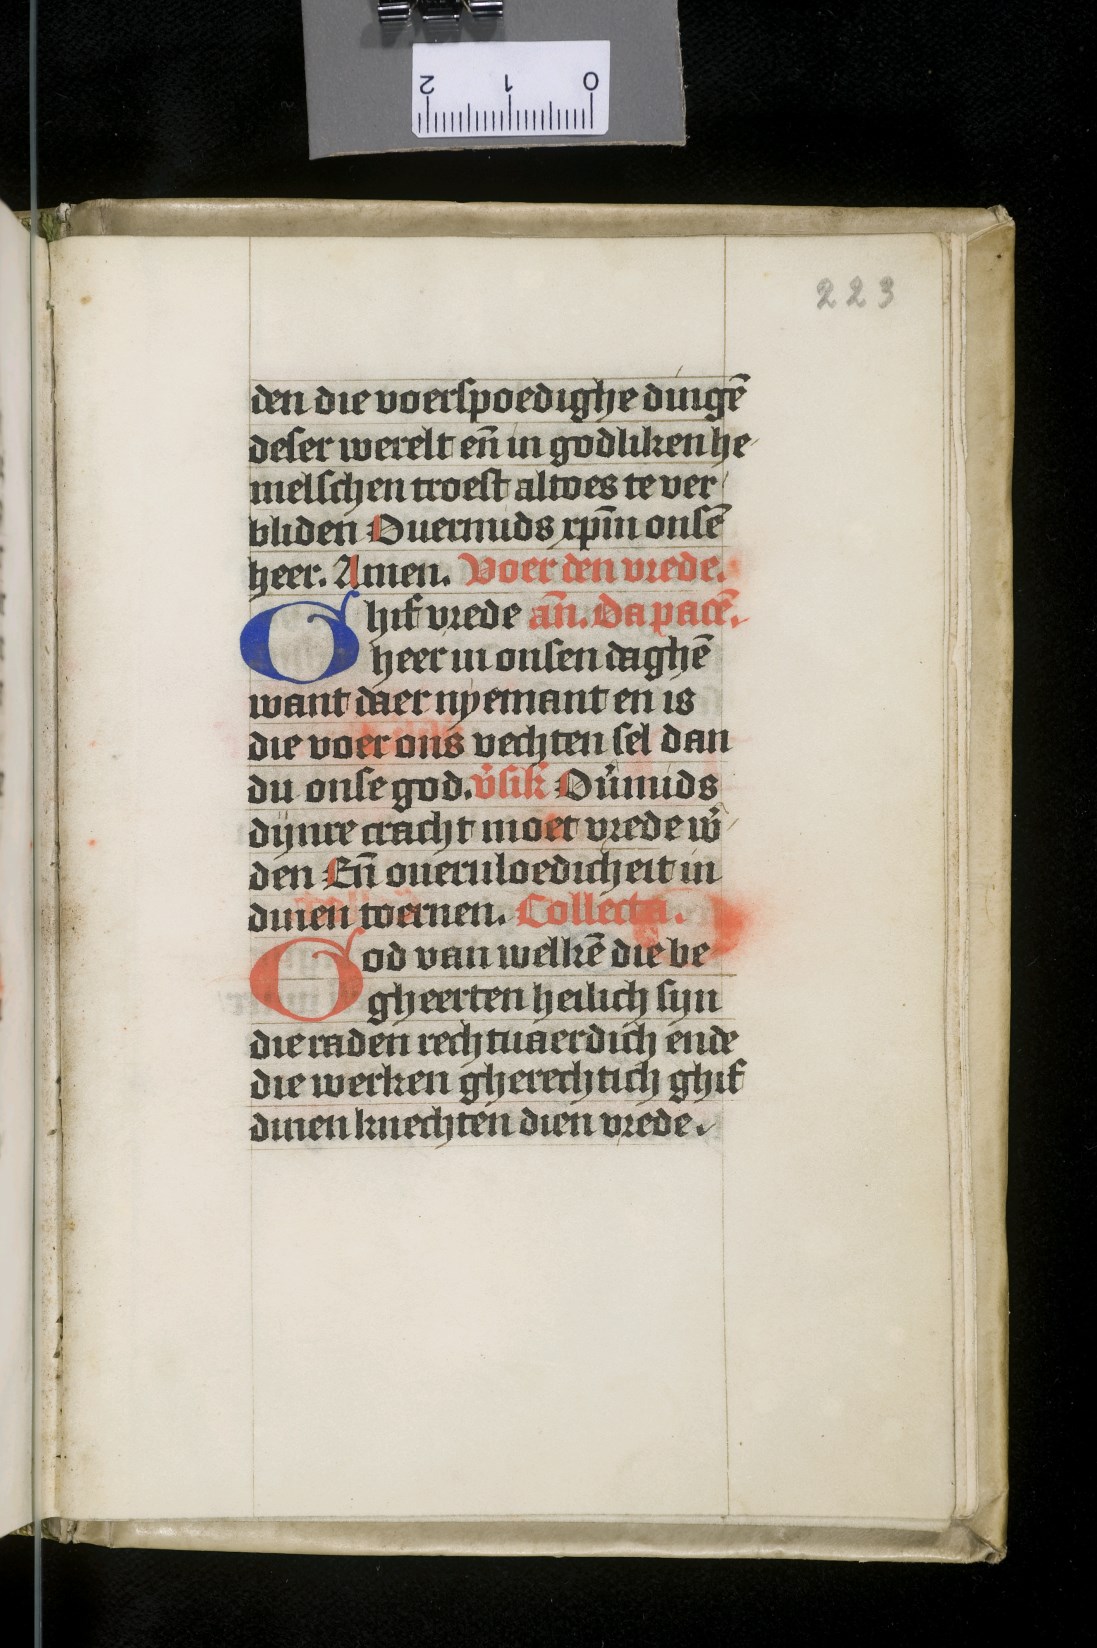 2 1 0
223
den die voerspoedighe dingē
deser werelt en̄ in godliken he
melschen troest altoes te ver
bliden Ouermids xp̄m onsē
heer. Amen. Voer den vrede.
Ghif vrede an̄. Da pacē.
heer in onsen daghē
want daer nyemant en is
die voer ons vechten sel dan
du onse god. v̛sik̄ Oưmids
dijnre cracht moet vrede w̛
den En̄ oueruloedicheit in
dinen toernen. Collecta.
God van welkē die be
gheerten heilich sijn
die raden rechtuaerdich ende
die werken gherechtich ghif
dinen knechten dien vrede.